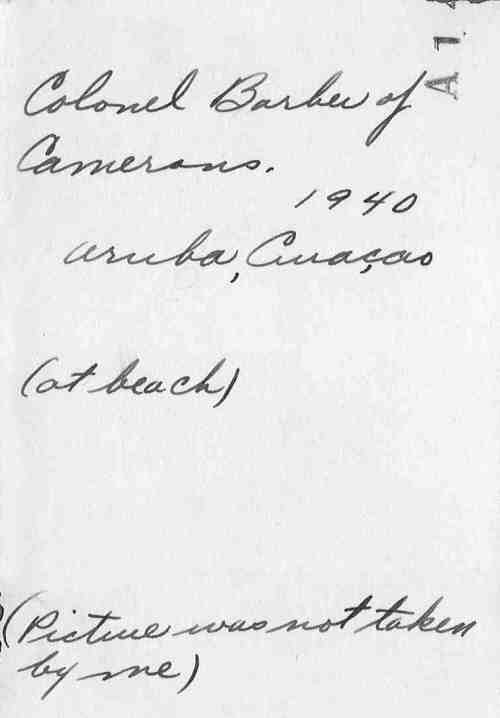 Colonel Barber of
Camerons.
1940
Aruba, Curaçao
(at beach)
(Picture was not taken
by me)
A 1